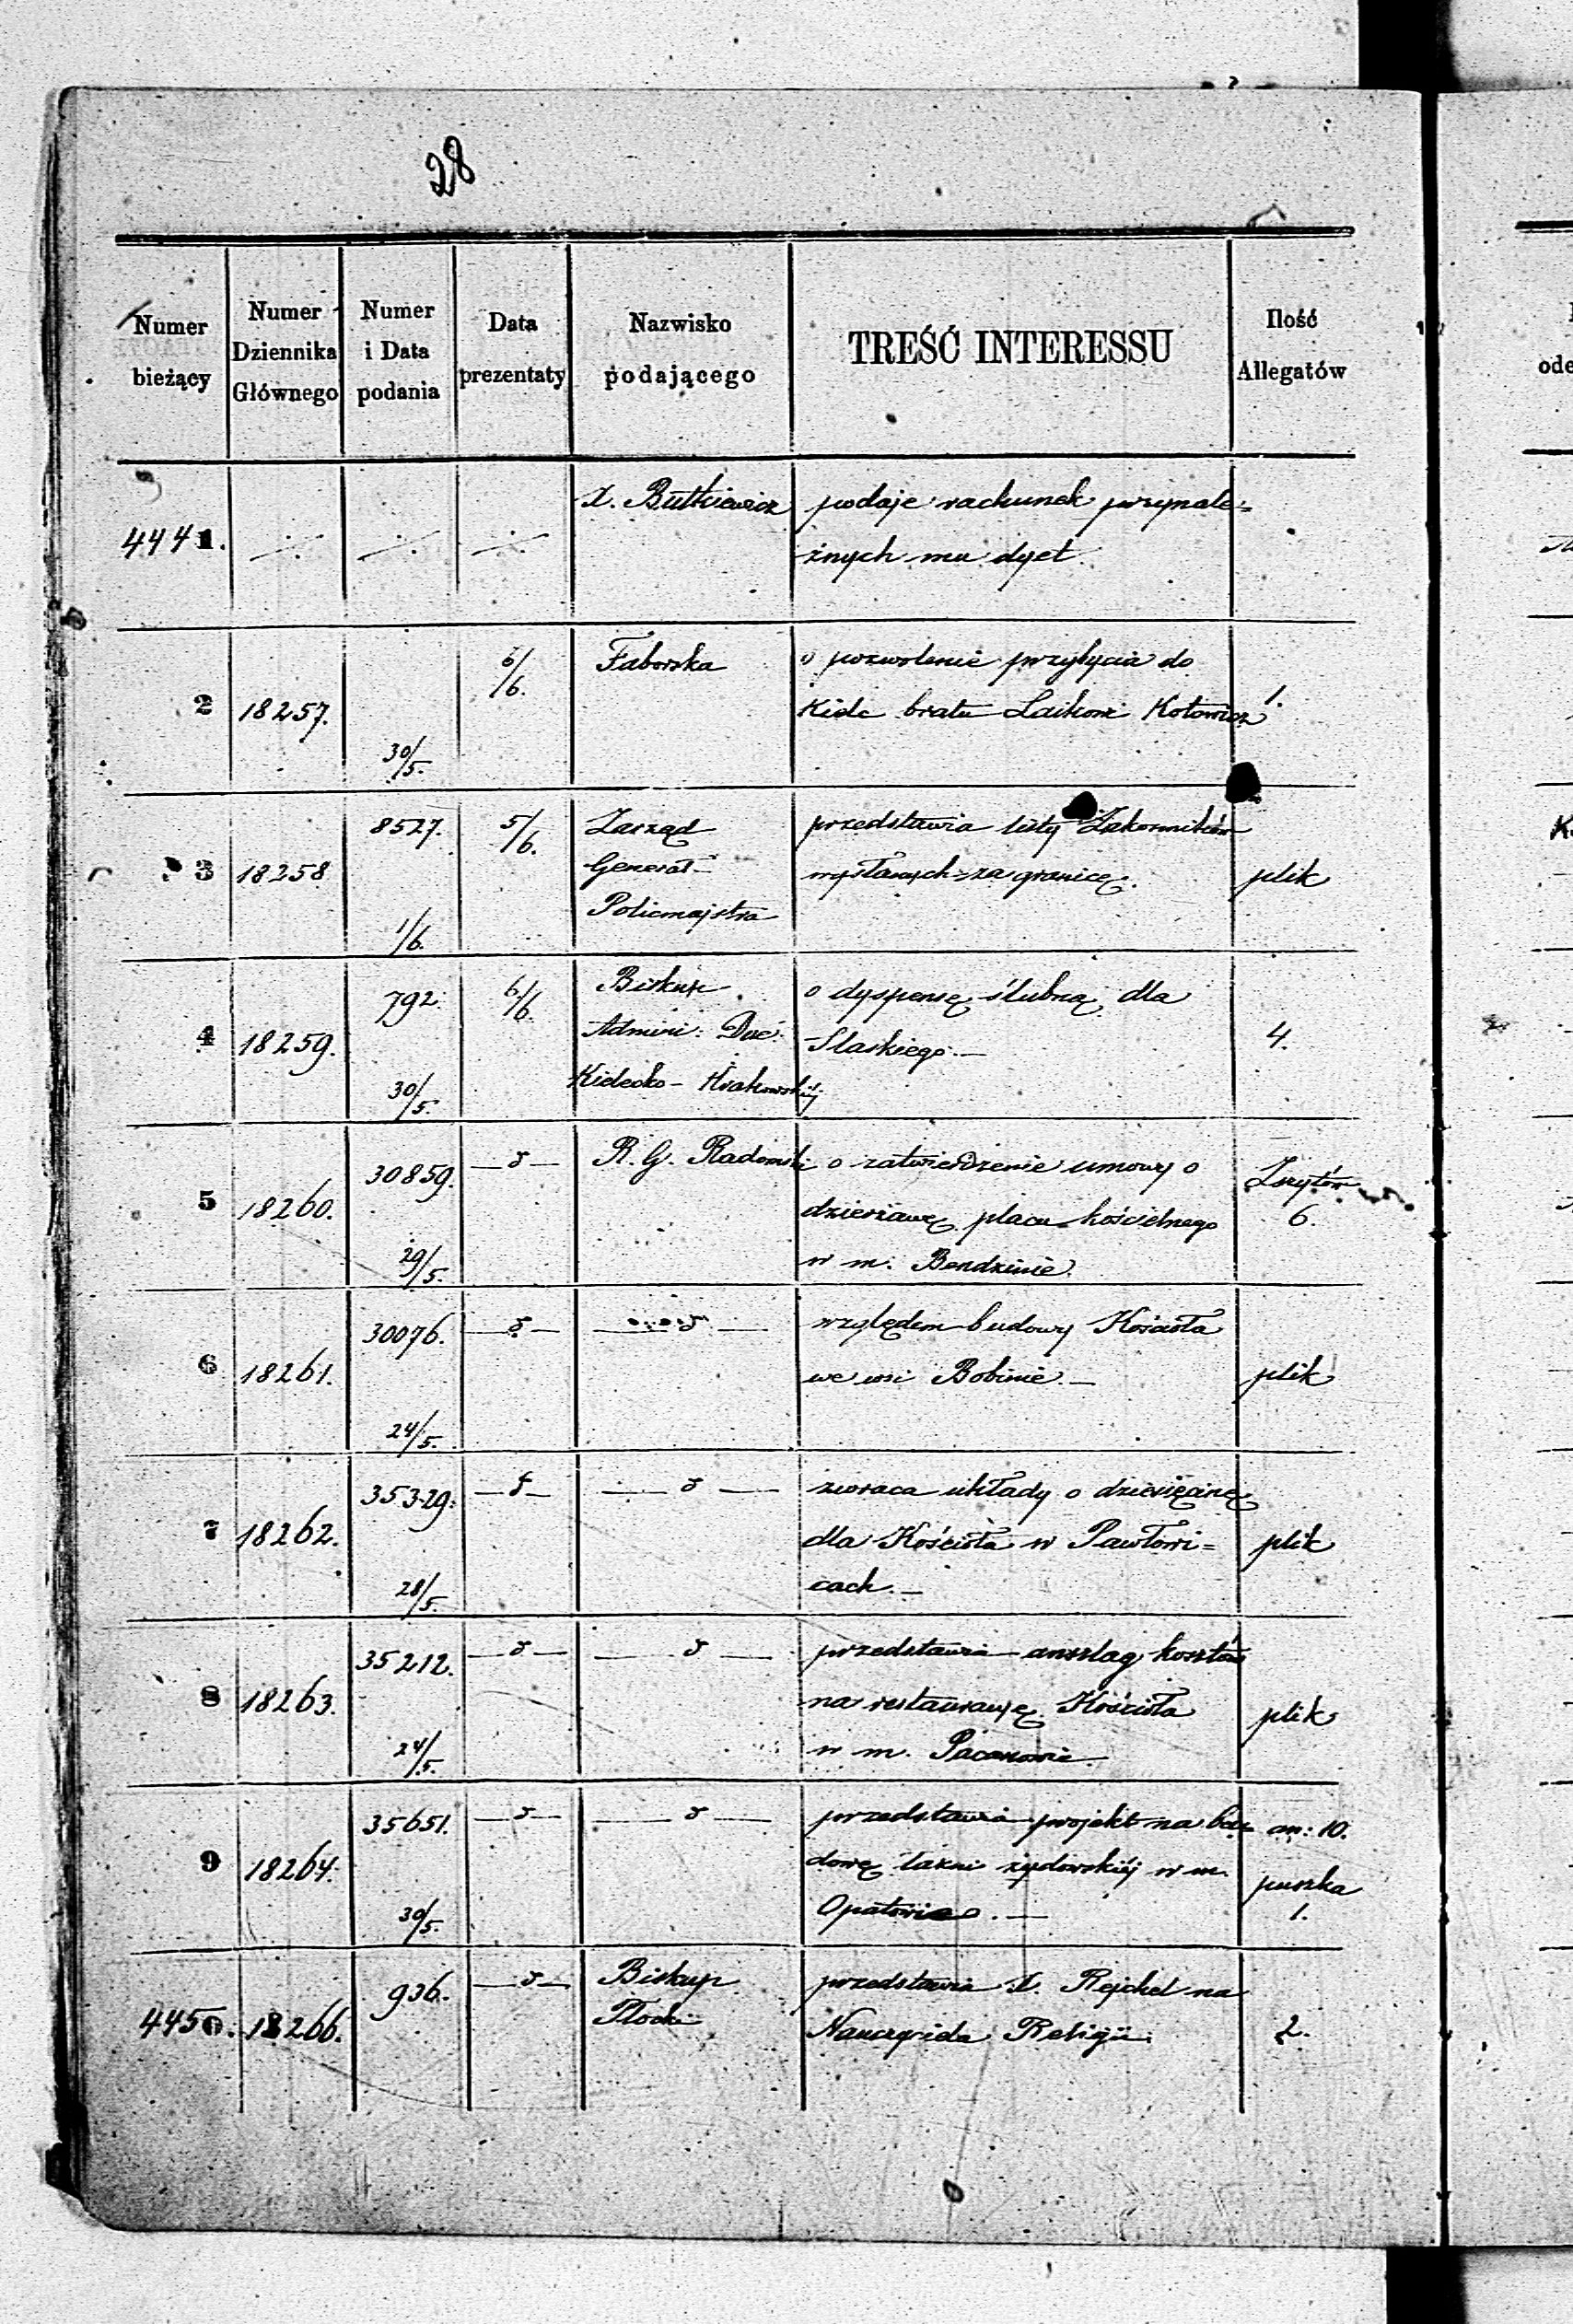 28
Numer bieżący
Numer Dziennika Głównego
Numer i Data podania
Data prezentaty
Nazwisko podającego
TREŚĆ INTERESSU
Ilość Allegatów
4441. ./. ./. ./. X. Butkiewicz podaje rachunek przynale=
żnych mu dyet
2 18257. 30/5. 6/6. Faborska o pozwolenie przybycia do
Kielc bratu Kotowicz 1.
3 18258 8527. 1/6. 5/6. Zarząd przedstawia listy Zakonników
Generał- wysłanych za granicę. plik
Policmajstra
4 18259. 792. 30/5. 6/6. Biskup o dyspensę ślubną dla
Admini: Dyec: Slaskiego.— 4.
Kielecko-Krakowskiej
5 18260. 30859. 29/5. —d— R. G. Radomski o zatwierdzenie umowy o
dzierżawę placu kościelnego Zszytów
w m. Bendzinie. 6.
6 18261. 30076. 24/5. —d— —d— względem budowy Kościoła
we wsi Bobinie.— plik
7 18262. 35329. 28/5. —d— —d— zwraca układy o dziesięcinę
dla Kościoła w Pawłowi= plik
cach.—
8 18263. 35212. 24/5. —d— —d— przedstawia anszlag kosztów
na restauracyę Kościoła plik
w m. Pacanowie.
9 18264. 35651. 30/5. —d— —d— przedstawia projekt na bu an: 10.
dowę łaźni żydowskiéj w m. puszka
Opatowie.— 1.
4450. 18266. 936. —d— Biskup przedstawia X. Rejchel na
Płocki Nauczyciela Religii. 2.